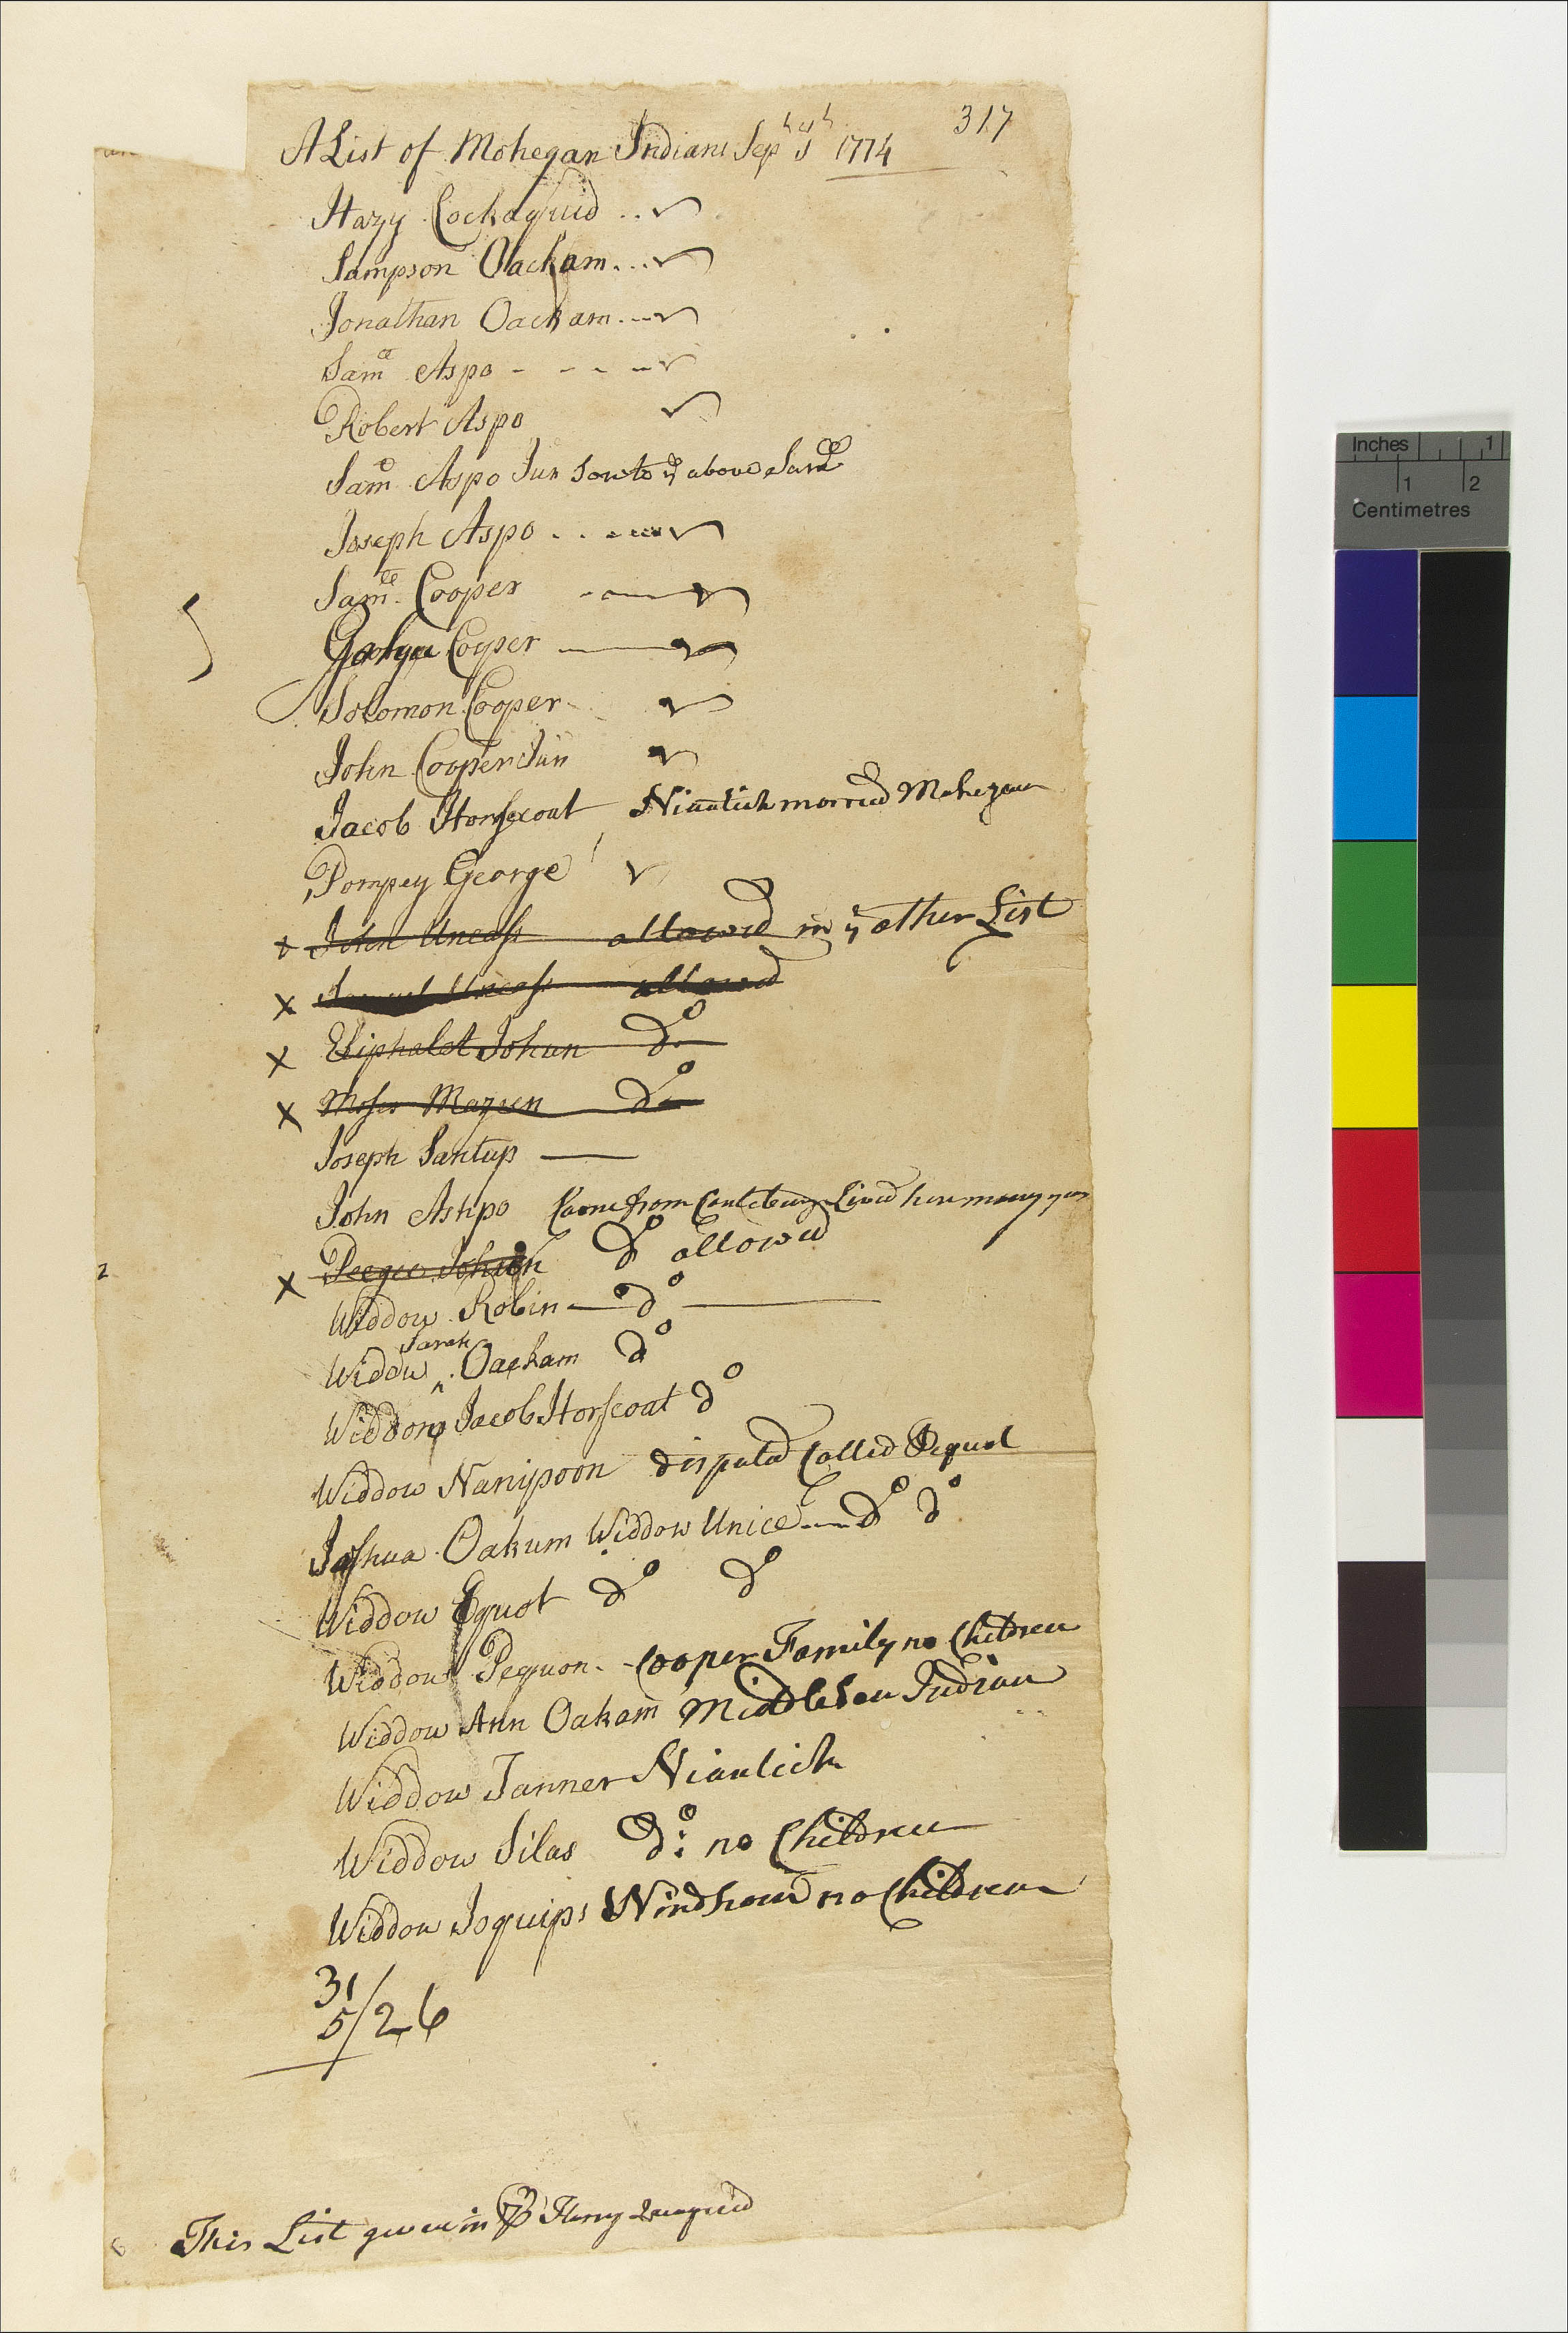 317
A List of Mohegan Indians Septh 5th 1774
Hazy Cockaquid ..
Sampson Oackam...
Jonathan Oackam
Samll Aspo - - - -
Robert Aspo
Samll Aspo Jun Son to ye above Samll
Joseph Aspo . . - -
Samll Cooper
Cooper
Solomon Cooper
John Cooper Jun
Jacob Horsscoat Niantick married Mohegan
Pompey George
x John Uncass allowed in ye other List
x Samuel Uncass allowed
x Eliphalet Johun Do
x Moses Mazeen Do
Joseph Santup
John Ashpo Came from Lived here many years
x Peegee Do allowed
Widdow Robin Do
Widdow Sarah Oackam Do
Widdow Jacob Horscoat Do
Widdow Nanipoon disputed Called Pequot
Joshua Oakum Widdow Unice Do Do
Widdow Equot Do Do
Widdow Pequon - Cooper Family no Children
Widdow Ann Oakam Middleton Indian
Widdow Tanner Niantick
Widdow Silas Do: no Children
Widdow Joquips Windham no Children
31
5/26
2
This List given in Harry
Inches 1
1 2
Centimetres